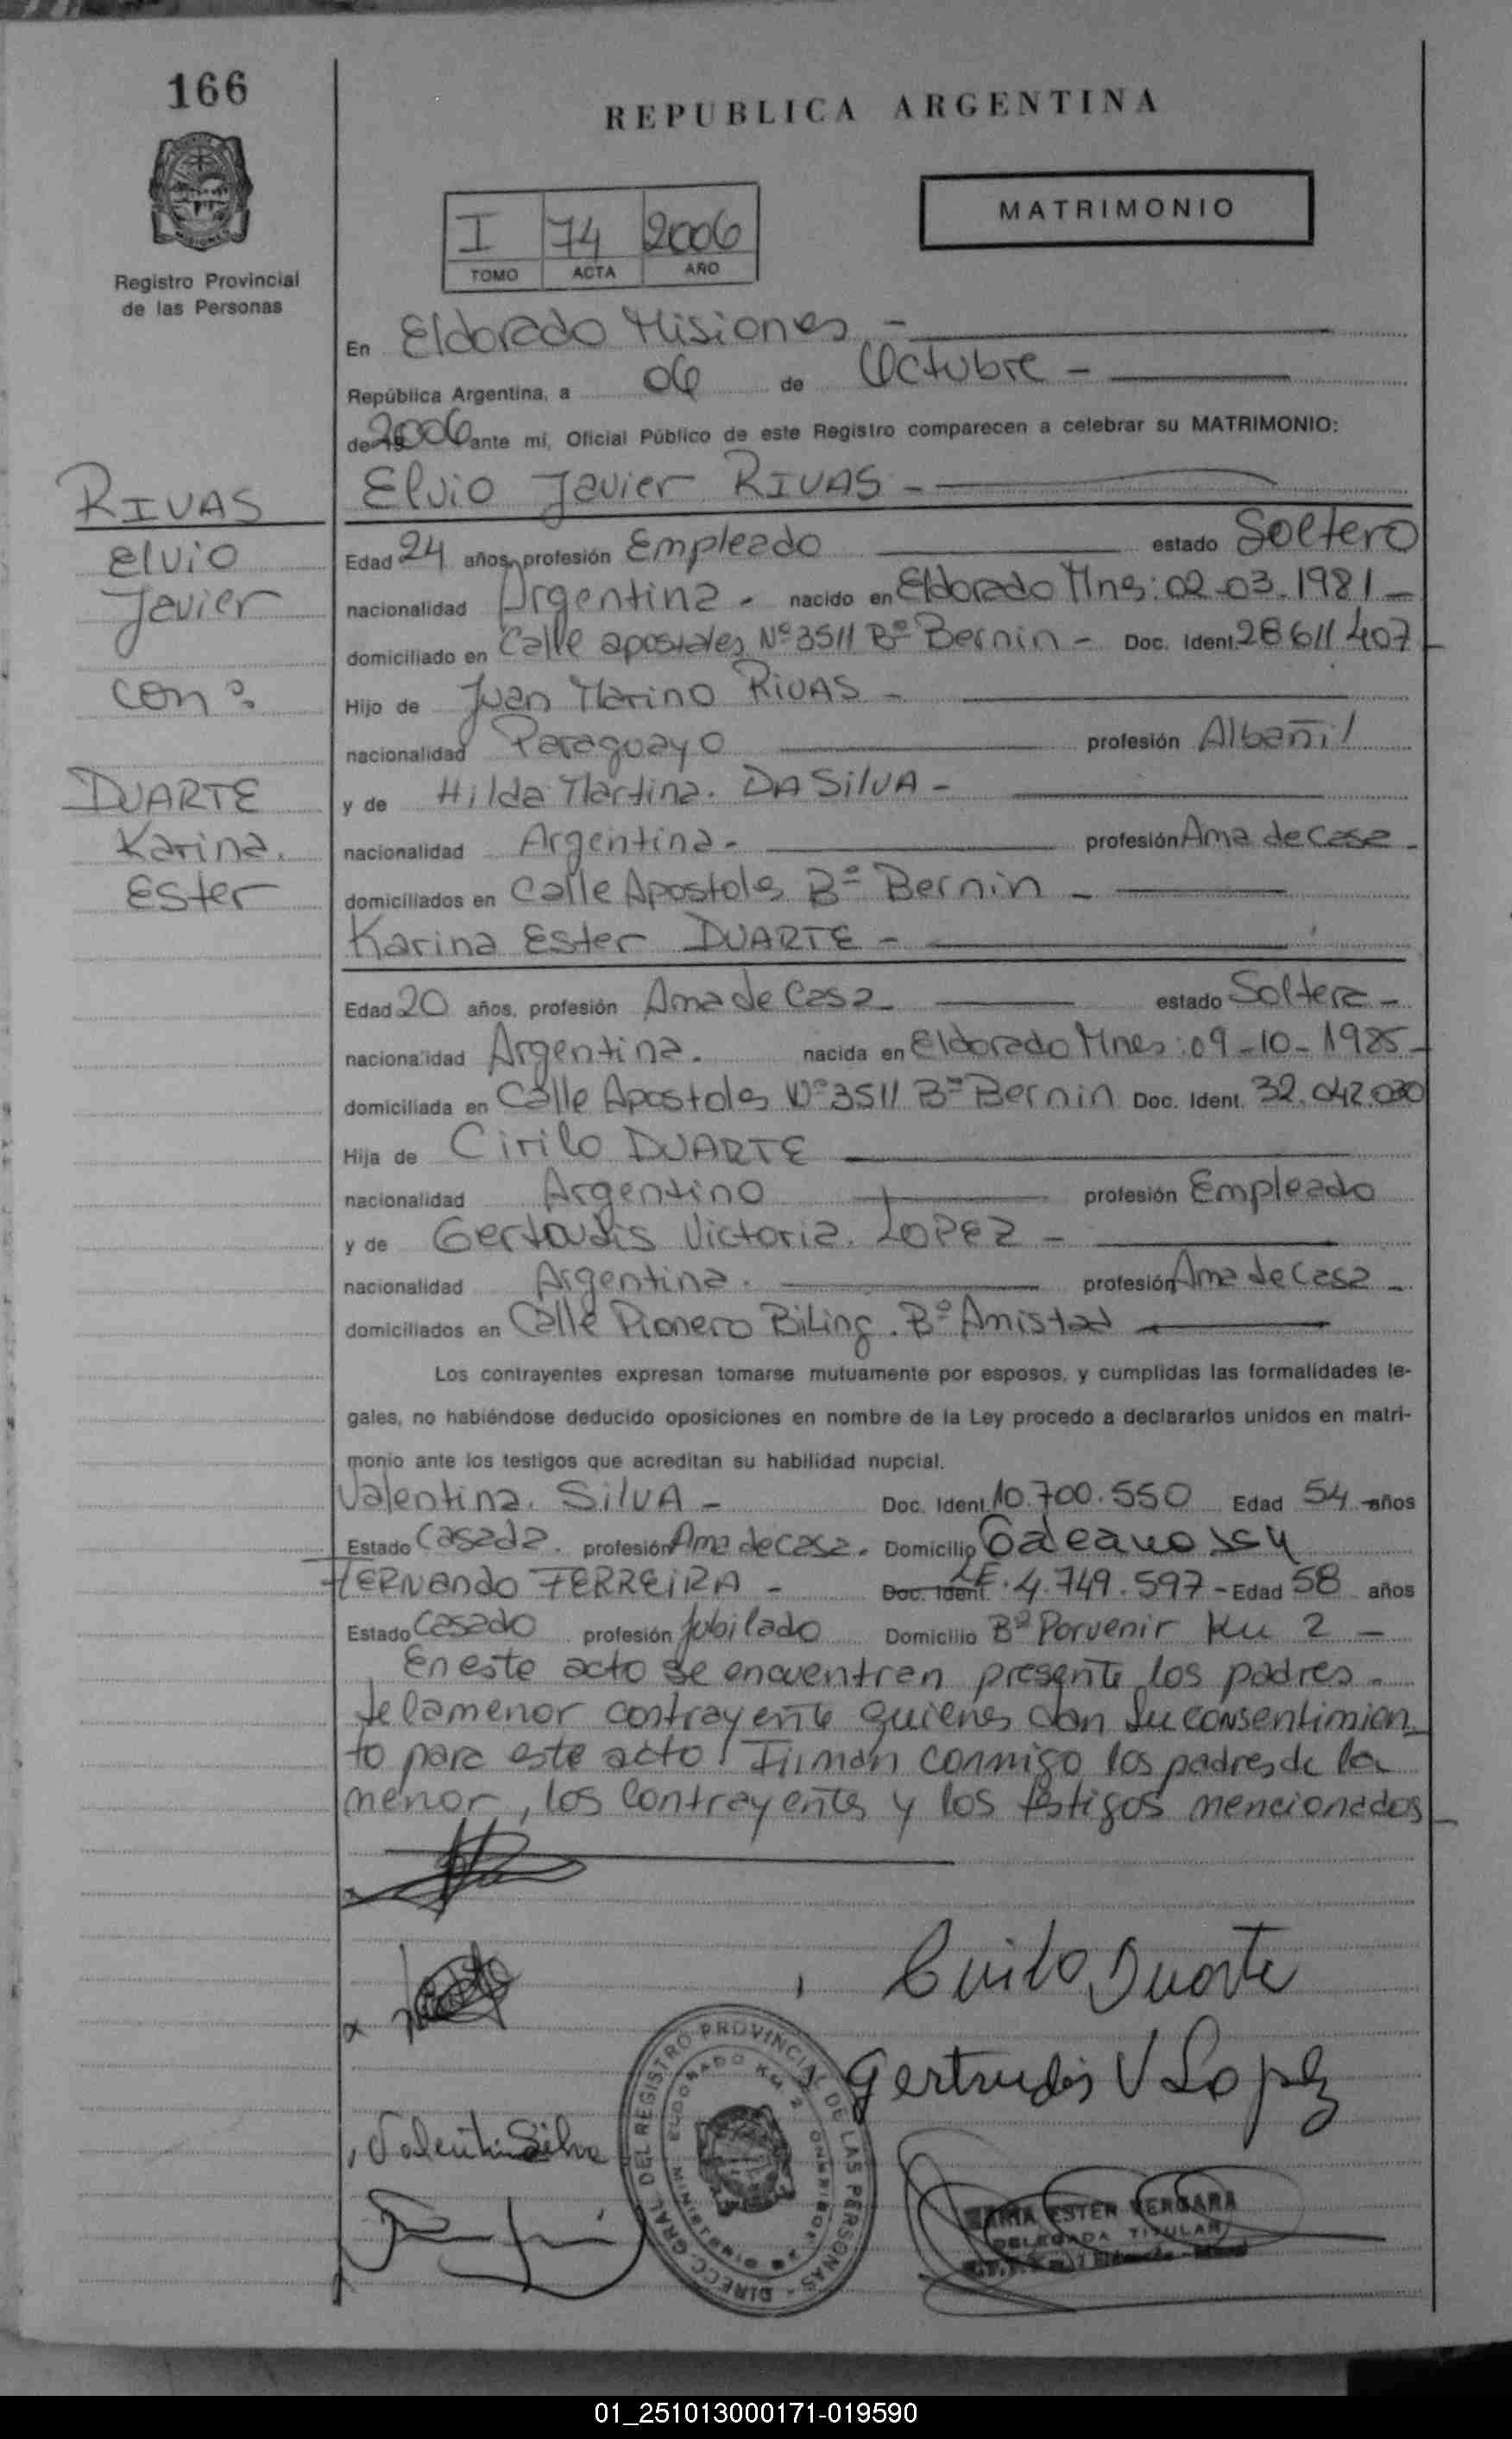 166
REPUBLICA ARGENTINA
Registro Provincial
de las Personas
I 74 2006
TOMO ACTA AÑO
MATRIMONIO
En Eldorado Misiones -
República Argentina, a 06 de Octubre -
de 2006 ante mi, Oficial Público de este Registro comparecen a celebrar su MATRIMONIO:
RIVAS
Elvio
Javier
con:
DUARTE
Karina.
Ester
Elvio Javier RIVAS -
Edad 24 años, profesión Empleado estado Soltero
nacionalidad Argentina - nacido en Eldorado Mns: 02-03-1981 -
domiciliado en Calle apostoles Nº 3511 Bº Bernin - Doc. Ident. 28611.407
Hijo de Juan Marino RIVAS -
nacionalidad Paraguayo profesión Albañil
y de Hilda Martina. DA SilVA -
nacionalidad Argentina - profesión Ama de Casa -
domiciliados en Calle Apostoles Bº Bernin -
Karina Ester DUARTE -
Edad 20 años, profesión Ama de Casa estado Soltera -
nacionalidad Argentina. nacida en Eldorado Mnes: 09-10-1985 -
domiciliada en Calle Apostoles Nº 3511 Bº Bernin Doc. Ident. 32.042.030
Hija de Cirilo DUARTE
nacionalidad Argentino profesión Empleado
y de Gertrudis Victoria. LOPEZ -
nacionalidad Argentina. profesión Ama de Casa -
domiciliados en Calle Pionero BiLing. Bº Amistad
Los contrayentes expresan tomarse mutuamente por esposos, y cumplidas las formalidades le-
gales, no habiéndose deducido oposiciones en nombre de la Ley procedo a declararlos unidos en matri-
monio ante los testigos que acreditan su habilidad nupcial.
Valentina. SilVA - Doc. Ident. 10.700.550 Edad 54 años
Estado Casada. profesión Ama de Casa. Domicilio Galeano
HERNando FERREIRA - Doc. Ident. LE. 4.749.597 - Edad 58 años
Estado Casado profesión Jubilado Domicilio Bº Porvenir Km 2 -
En este acto se encuentran presente los padres -
de la menor contrayente quienes dan su consentimien
to para este acto! Firman conmigo los padres de la
menor, los Contrayentes y los testigos mencionados
Cirilo Duarte
Gertrudis V Lopez
Valentin Silva
DIRECC. GRAL. DEL REGISTRO PROVINCIAL DE LAS PERSONAS
ELDORADO KM. 2
MINISTERIO DE GOBIERNO
MARIA ESTER VERGARA
DELEGADA TITULAR
01_251013000171-019590